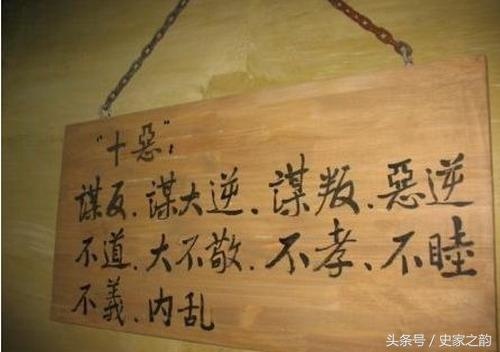 “十惡”：
謀反、謀大逆、謀叛、惡逆
不道、大不敬、不孝、不睦
不義、内乱
头条号／史家之韵